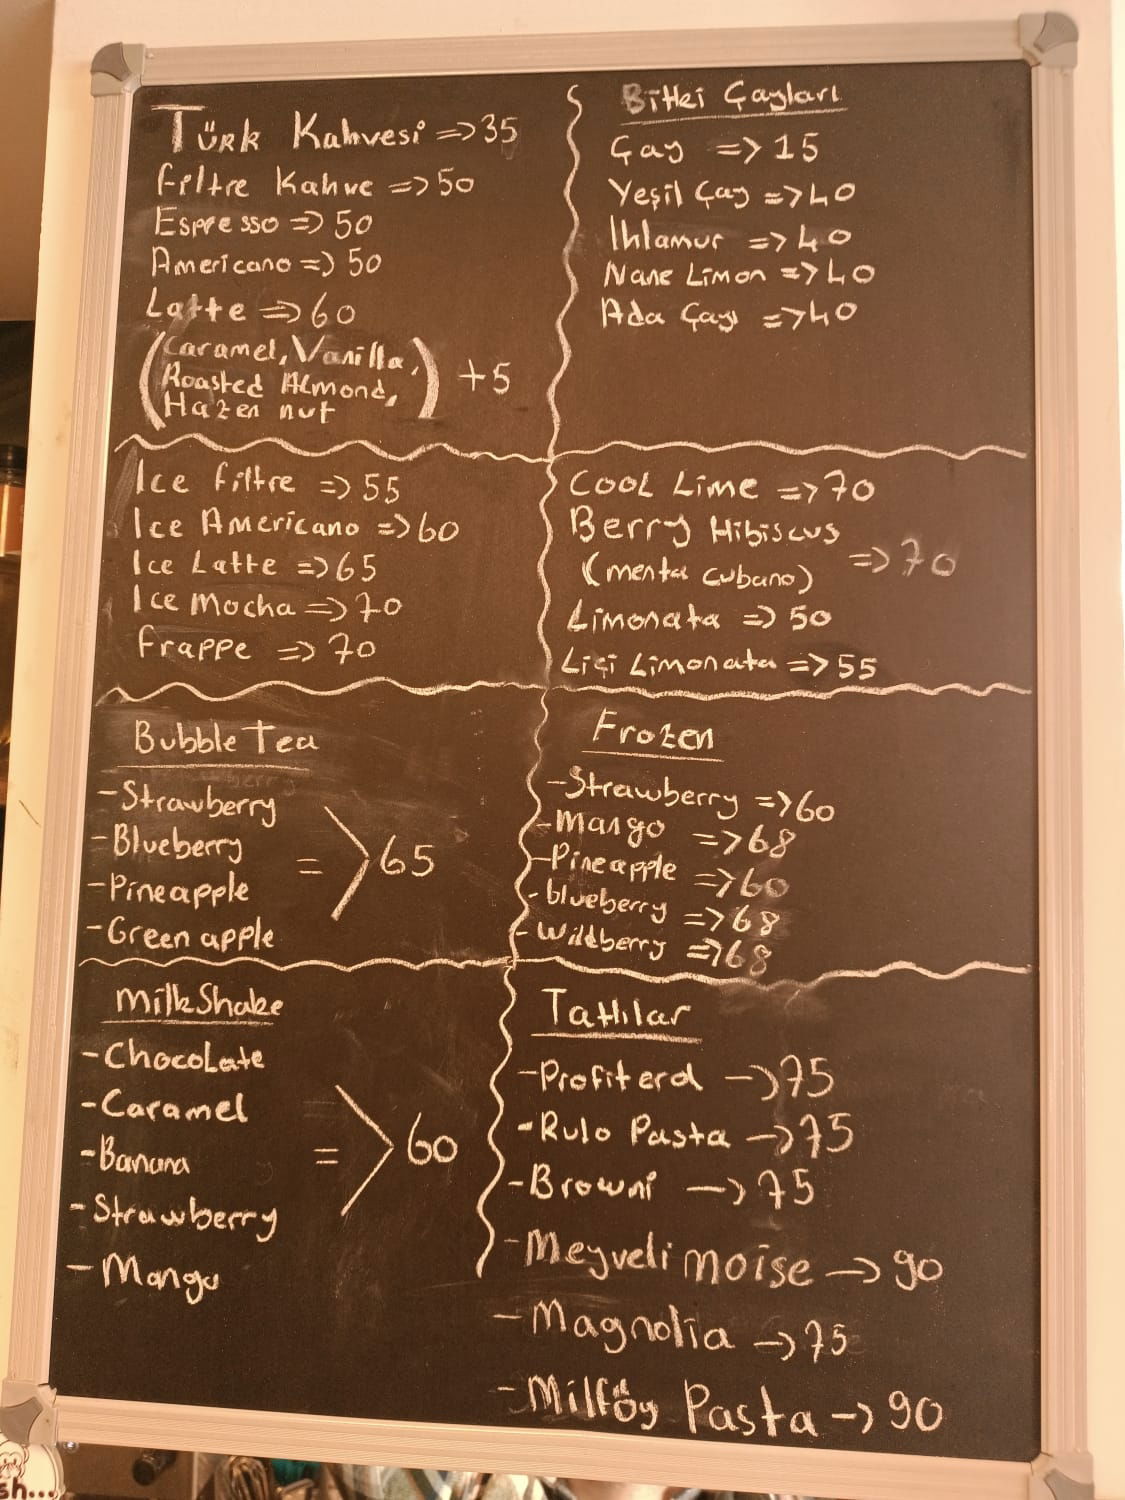 Türk Kahvesi => 35
Filtre Kahve => 50
Espresso => 50
Americano => 50
Latte => 60
(Caramel, Vanilla,
Roasted Almond,
Hazen nut) +5
Bitki Çayları
Çay => 15
Yeşil Çay => 40
Ihlamur => 40
Nane Limon => 40
Ada Çayı => 40
Ice Filtre => 55
Ice Americano => 60
Ice Latte => 65
Ice Mocha => 70
Frappe => 70
Cool Lime => 70
Berry Hibiscus
(menta cubano) => 70
Limonata => 50
Liçi Limonata => 55
Bubble Tea
-Strawberry
-Blueberry
-Pineapple
-Green apple
=> 65
Frozen
-Strawberry => 60
-Mango => 68
-Pineapple => 60
-blueberry => 68
-Wildberry => 68
MilkShake
-Chocolate
-Caramel
-Banana
-Strawberry
-Mango
=> 60
Tatlılar
-Profiterol -> 75
-Rulo Pasta -> 75
-Browni -> 75
-Meyveli moise -> 90
-Magnolia -> 75
-Milföy Pasta -> 90
sh...